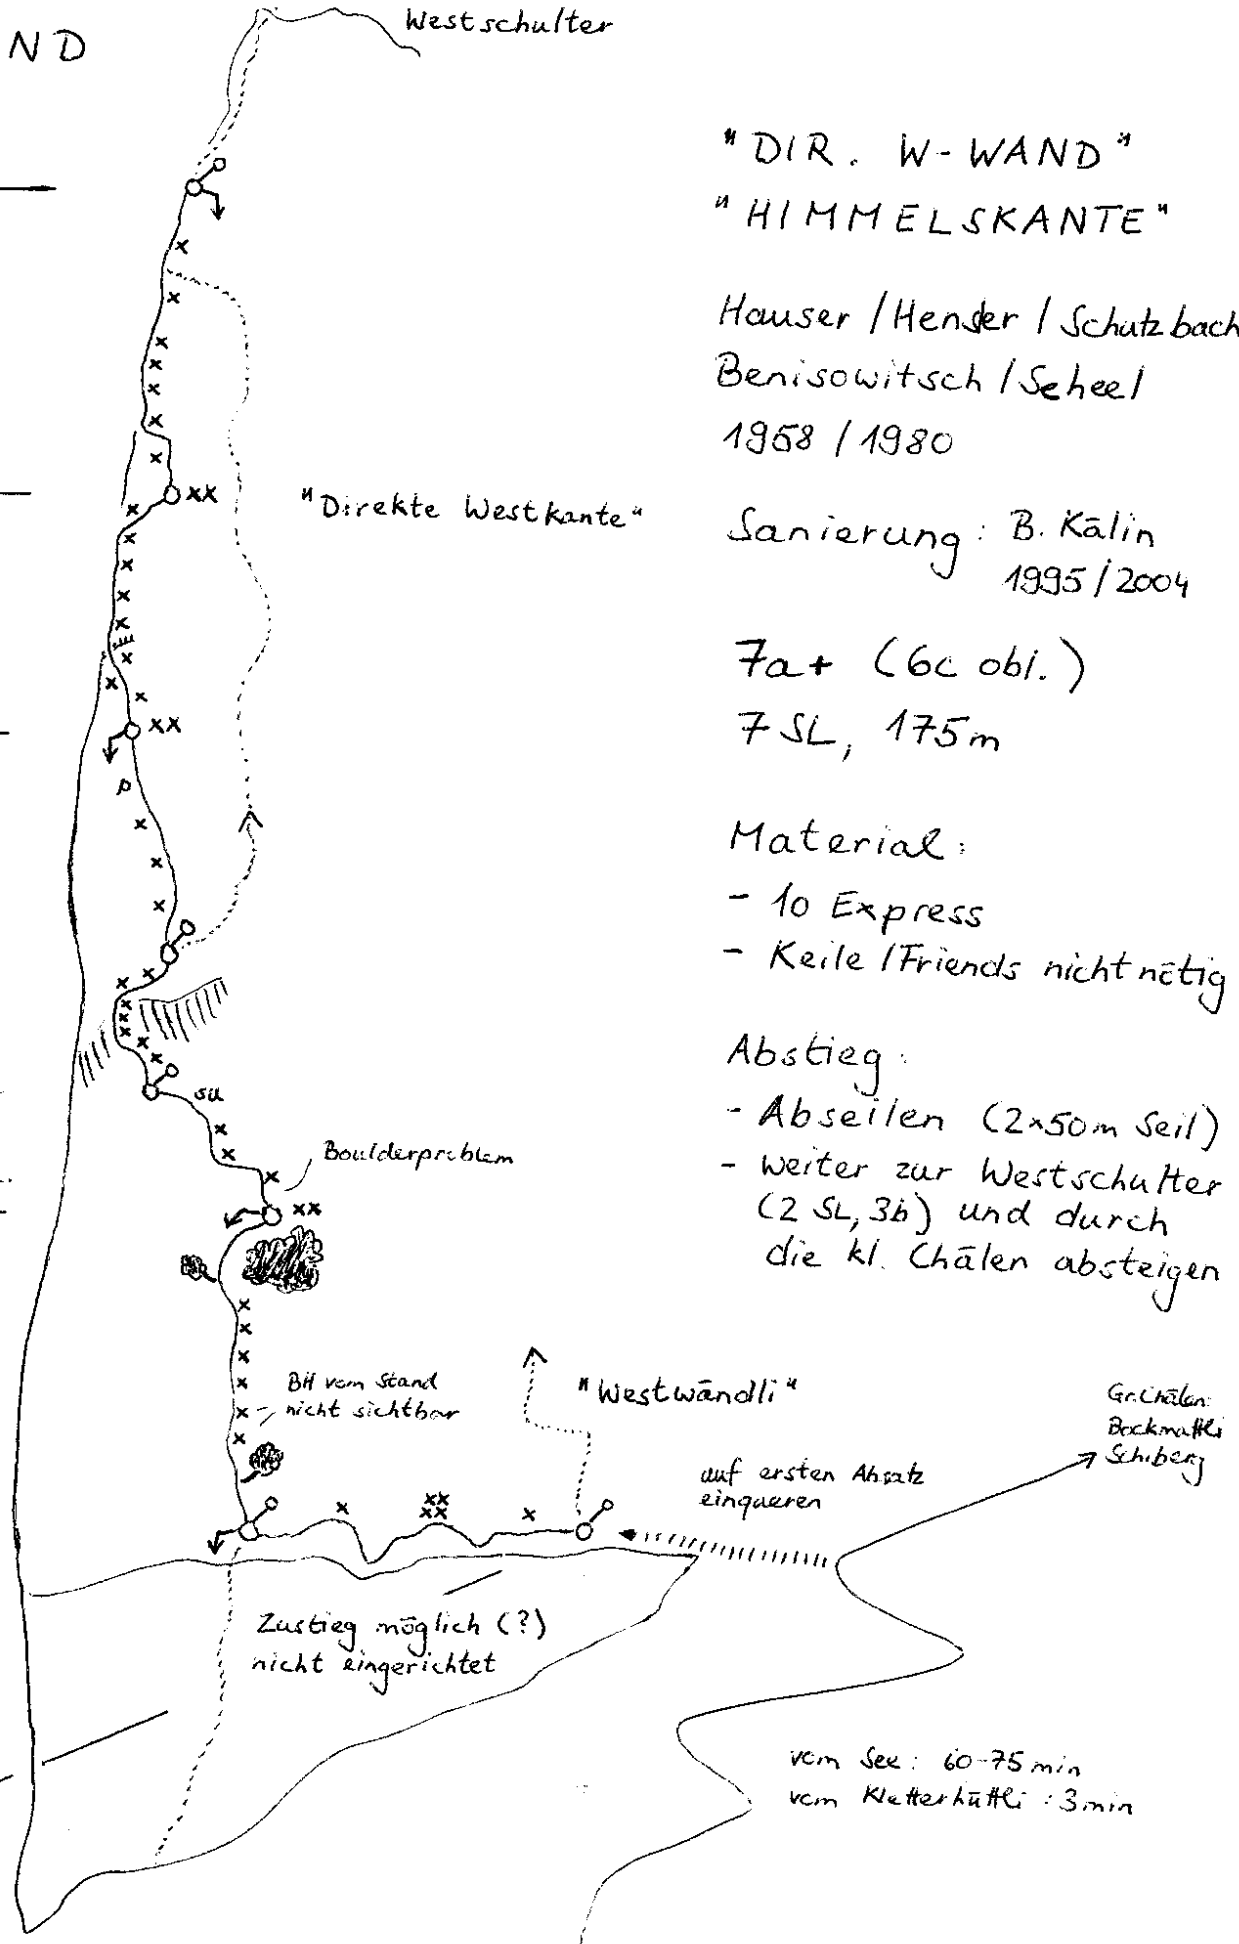 ND
Westschulter
"DIR. W-WAND"
"HIMMELSKANTE"
Hauser / Henster / Schutzbach
Benisowitsch / Scheel
1958 / 1980
"Direkte Westkante"
Sanierung: B. Kälin
1995 / 2004
7a+ (6c obl.)
7 SL, 175m
Material:
- 10 Express
- Keile / Friends nicht nötig
Abstieg:
- Abseilen (2x50m Seil)
- weiter zur Westschulter
(2 SL, 3b) und durch
die kl. Chälen absteigen
su
Boulderproblem
BH vom Stand
nicht sichtbar
"Westwändli"
Gr. Chälen:
Bockmattli
Schiberg
auf ersten Absatz
einqueren
Zustieg möglich (?)
nicht eingerichtet
vom See: 60-75 min
vom Kletterhüttli: 3 min